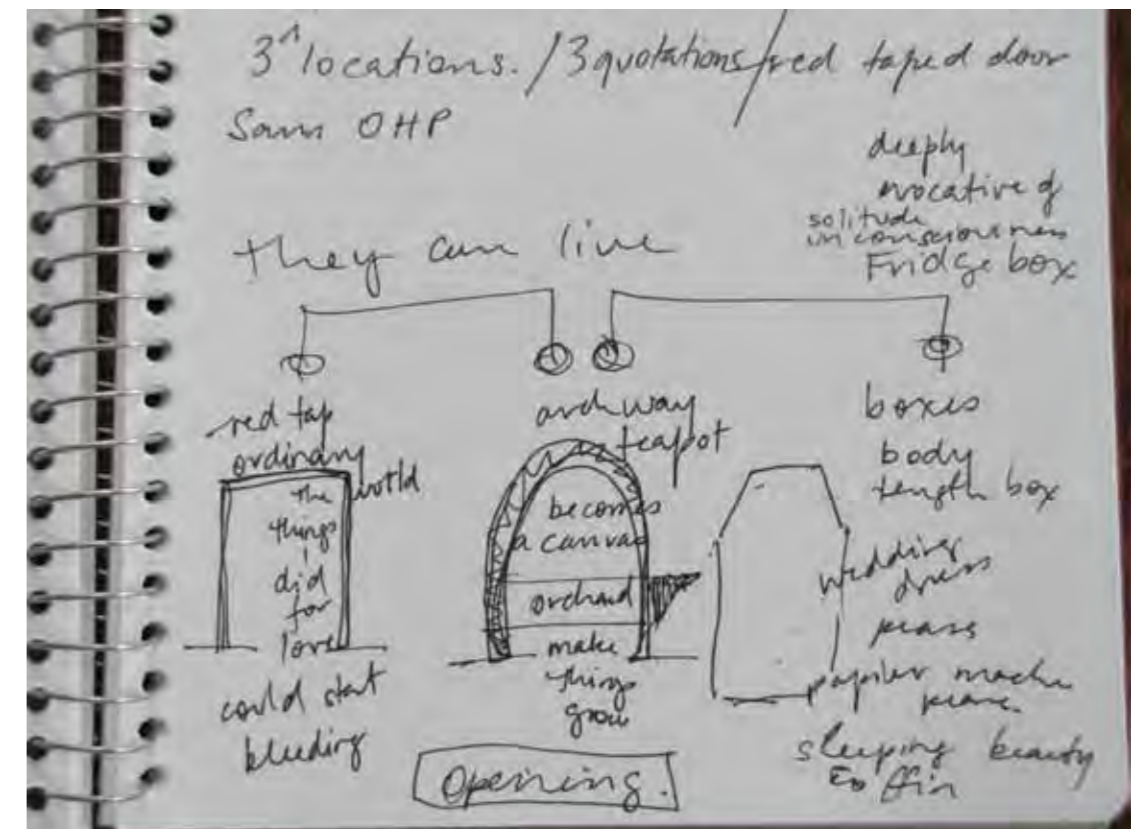 3 locations. / 3 quotations / red taped door
Sam OHP
deeply
evocative of
solitude
unconsciousness
Fridge box
they can live
red tap
ordinary
world
the
things
I
did
for
love
could start
bleeding
archway
teapot
becomes
a canvas
orchard
make
things
grow
boxes
body
length box
wedding
dress
pears
papier mache
pears.
sleeping beauty
coffin
Opening.